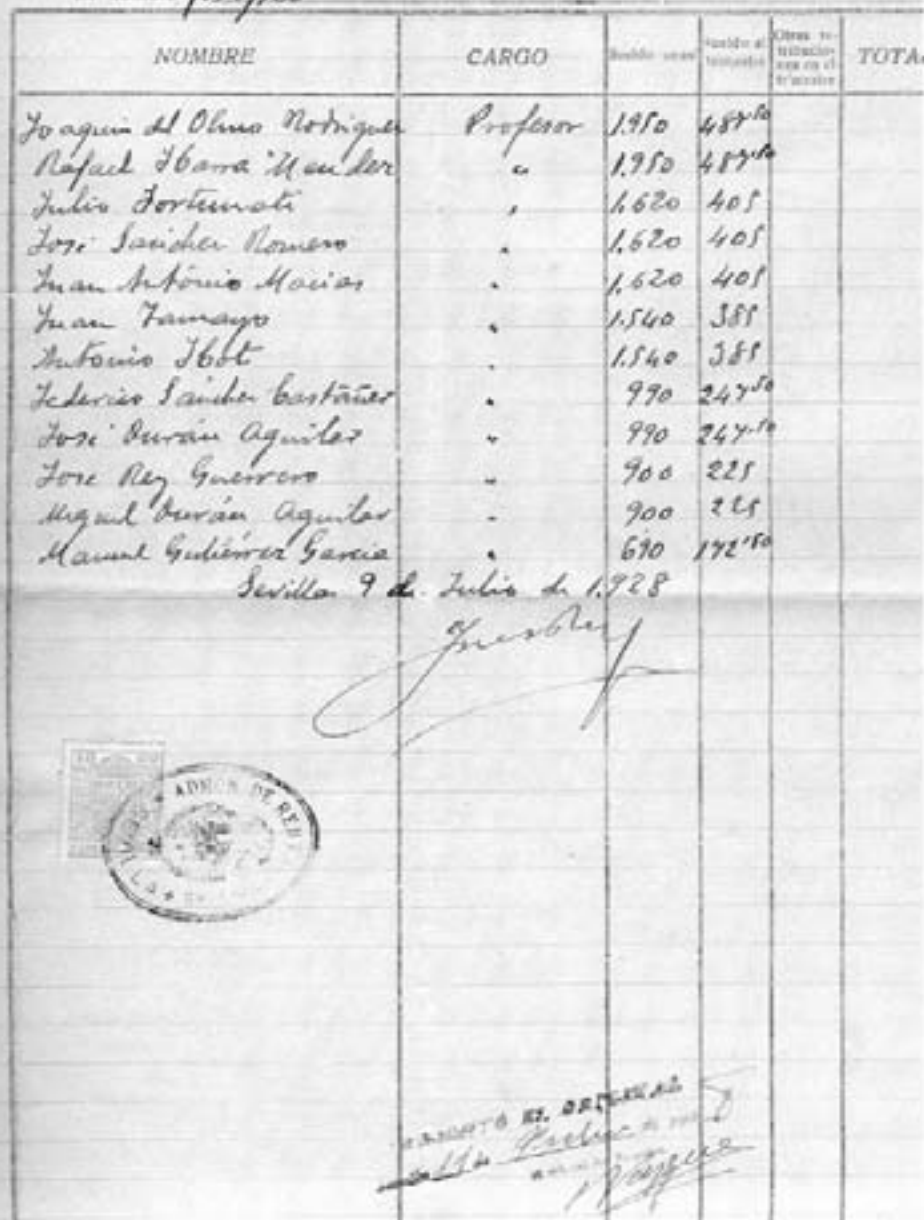 NOMBRE CARGO Sueldo anual Sueldo al trimestre Otras retribuciones en el trimestre TOTAL
Joaquin del Olmo Rodriguez Profesor 1.950 487'50
Rafael Ibarra Mendez " 1.950 487'50
Julio Fortunati " 1.620 405
José Sanchez Romero " 1.620 405
Juan António Macias " 1.620 405
Juan Tamayo " 1.540 385
Antonio Ibot " 1.540 385
Federico Sánchez Castañer " 990 247'50
José Durán Aguilar " 990 247'50
Jose Rey Guerrero " 900 225
Miguel Durán Aguilar " 900 225
Manuel Gutiérrez Garcia " 690 172'50
Sevilla 9 de Julio de 1.928
José Rey
ADMON. DE RENTAS
ES. ORIGINAL